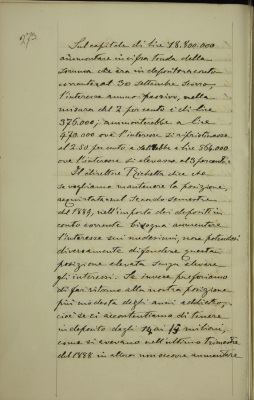 273
Sul capitale di lire 18.800.000
ammontare in cifra tonda della
somma che era in deposito a conto
corrente al 30 settembre scorso,
l'interesse annuo passivo, nella
misura del 2 per cento è di lire
376.000; ammonterebbe a lire
470.000 ove l'interesse si ripristinasse
al 2.50 per cento e a lire 564.000
ove l'interesse si elevasse al 3 per cento.
Il direttore dice che
se vogliamo mantenere la posizione,
acquistata nel secondo semestre
del 1889, nell'importo dei depositi in
conto corrente bisogna aumentare
l'interesse sui medesimi, non potendosi
diversamente difendere questa
posizione elevata senza elevare
gli interessi. Se invece preferiamo
di far ritorno alla nostra posizione
più modesta degli anni addietro,
cioè se ci accontentiamo di tenere
in deposito dagli 14 ai milioni,
come si avevano nell'ultimo trimestre
del 1888 in allora non occorre aumentare